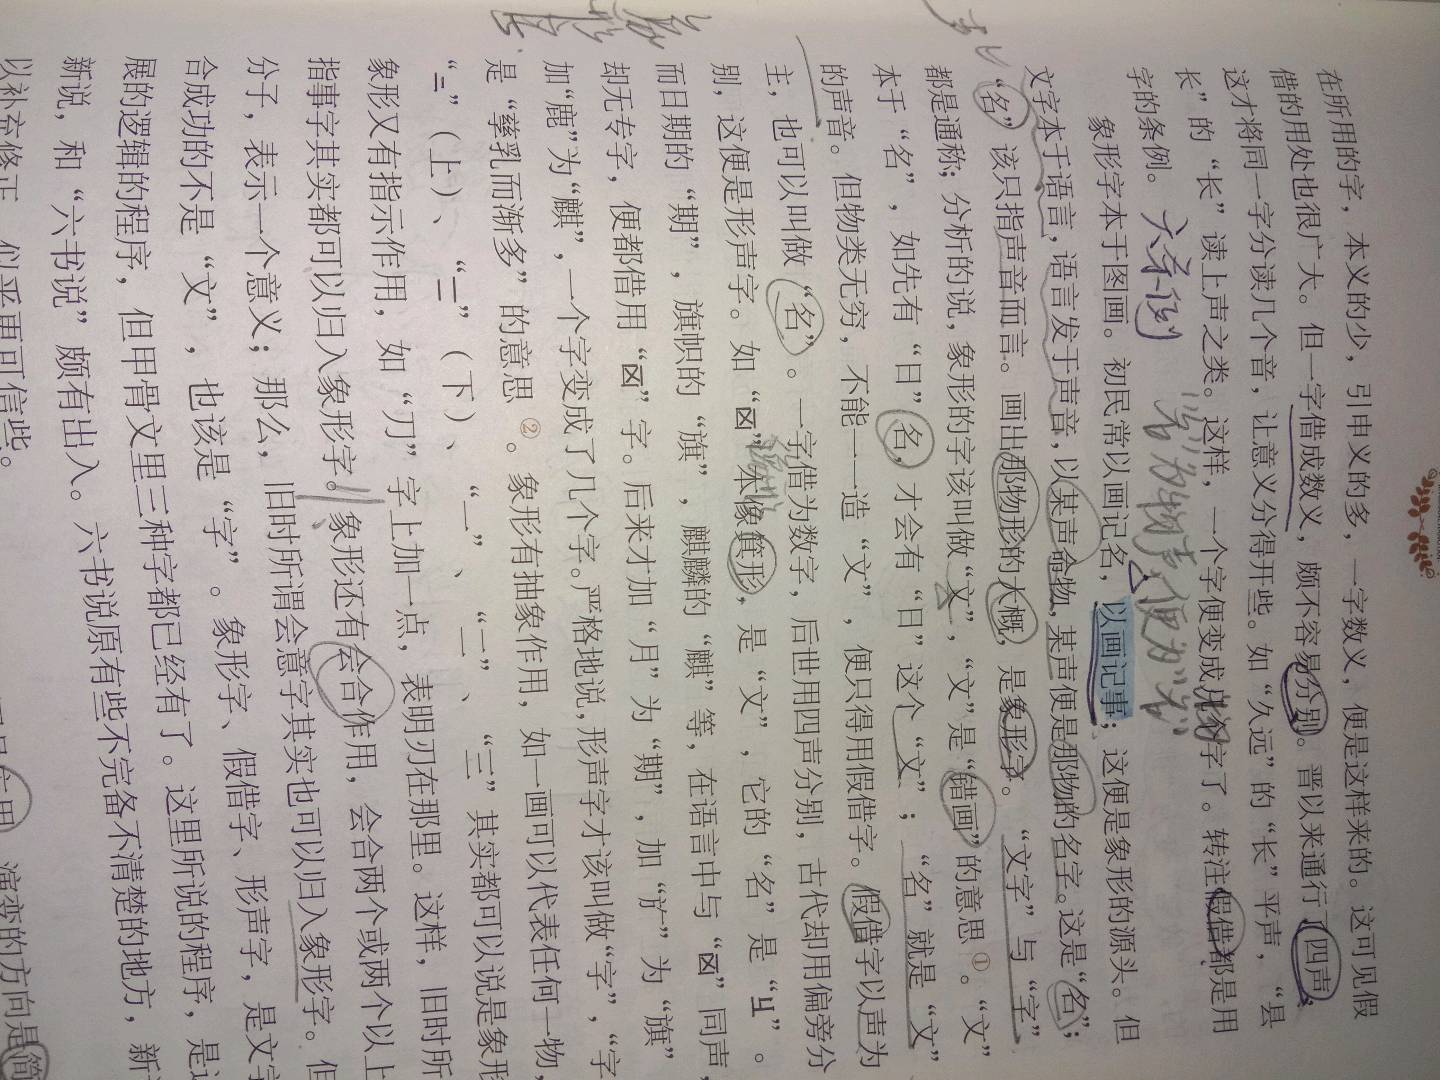 在所用的字，本义的少，引申义的多，一字数义，便是这样来的。这可见假
借的用处也很广大。但一字借成数义，颇不容易分别。晋以来通行了四声，
这才将同一字分读几个音，让意义分得开些。如“久远”的“长”平声，“县
长”的“长”读上声之类。这样，一个字便变成几个字了。转注假借都是用
字的条例。
象形字本于图画。初民常以画记名，以画记事；这便是象形的源头。但
文字本于语言，语言发于声音，以某声命物，某声便是那物的名字。这是“名”；
“名”该只指声音而言。画出那物形的大概，是象形字。“文字”与“字”
都是通称；分析的说，象形的字该叫做“文”，“文”是“错画”的意思①。“文”
本于“名”，如先有“日”名，才会有“日”这个“文”；“名”就是“文”
的声音。但物类无穷，不能一一造“文”，便只得用假借字。假借字以声为
主，也可以叫做“名”。一字借为数字，后世用四声分别，古代却用偏旁分
别，这便是形声字。如“𠀠”本像箕形，是“文”，它的“名”是“ㄐㄧ”。
而日期的“期”，旗帜的“旗”，麒麟的“麒”等，在语言中与“𠀠”同声，
却无专字，便都借用“𠀠”字。后来才加“月”为“期”，加“㫃”为“旗”
加“鹿”为“麒”，一个字变成了几个字。严格地说，形声字才该叫做“字”，“字
是“孳乳而渐多”的意思②。象形有抽象作用，如一画可以代表任何一物，
“二”（上）、“二”（下）、“一”、“二”、“三”其实都可以说是象形
象形又有指示作用，如“刀”字上加一点，表明刃在那里。这样，旧时所
指事字其实都可以归入象形字。象形还有会合作用，会合两个或两个以上
分子，表示一个意义；那么，旧时所谓会意字其实也可以归入象形字。但
合成功的不是“文”，也该是“字”。象形字、假借字、形声字，是文字
展的逻辑的程序，但甲骨文里三种字都已经有了。这里所说的程序，是
新说，和“六书说”颇有出入。六书说原有些不完备不清楚的地方，新
以补充修正，似乎更可信些。
演变的方向是简